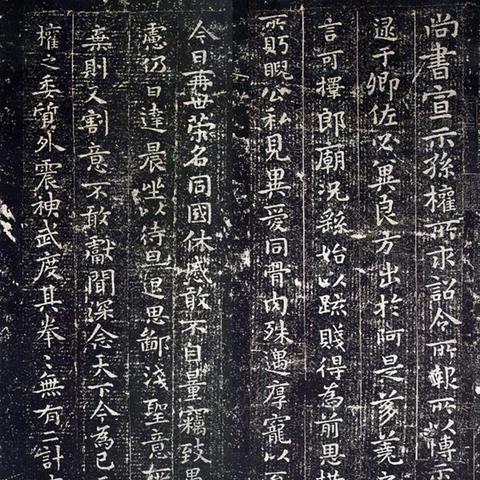 尚書宣示孫權所求詔令所報所以博示
逮于卿佐必冀良方出於阿是芻蕘
言可擇郎廟況繇始以疏賤得為前恩
所眄睨公私見異愛同骨肉殊遇厚寵以
今日再世榮名同國休慼敢不自量竊致愚
慮仍日達晨坐以待旦退思鄙淺聖意
棄則又割意不敢獻聞深念天下今為已
權之委質外震神武度其拳〻無有二計